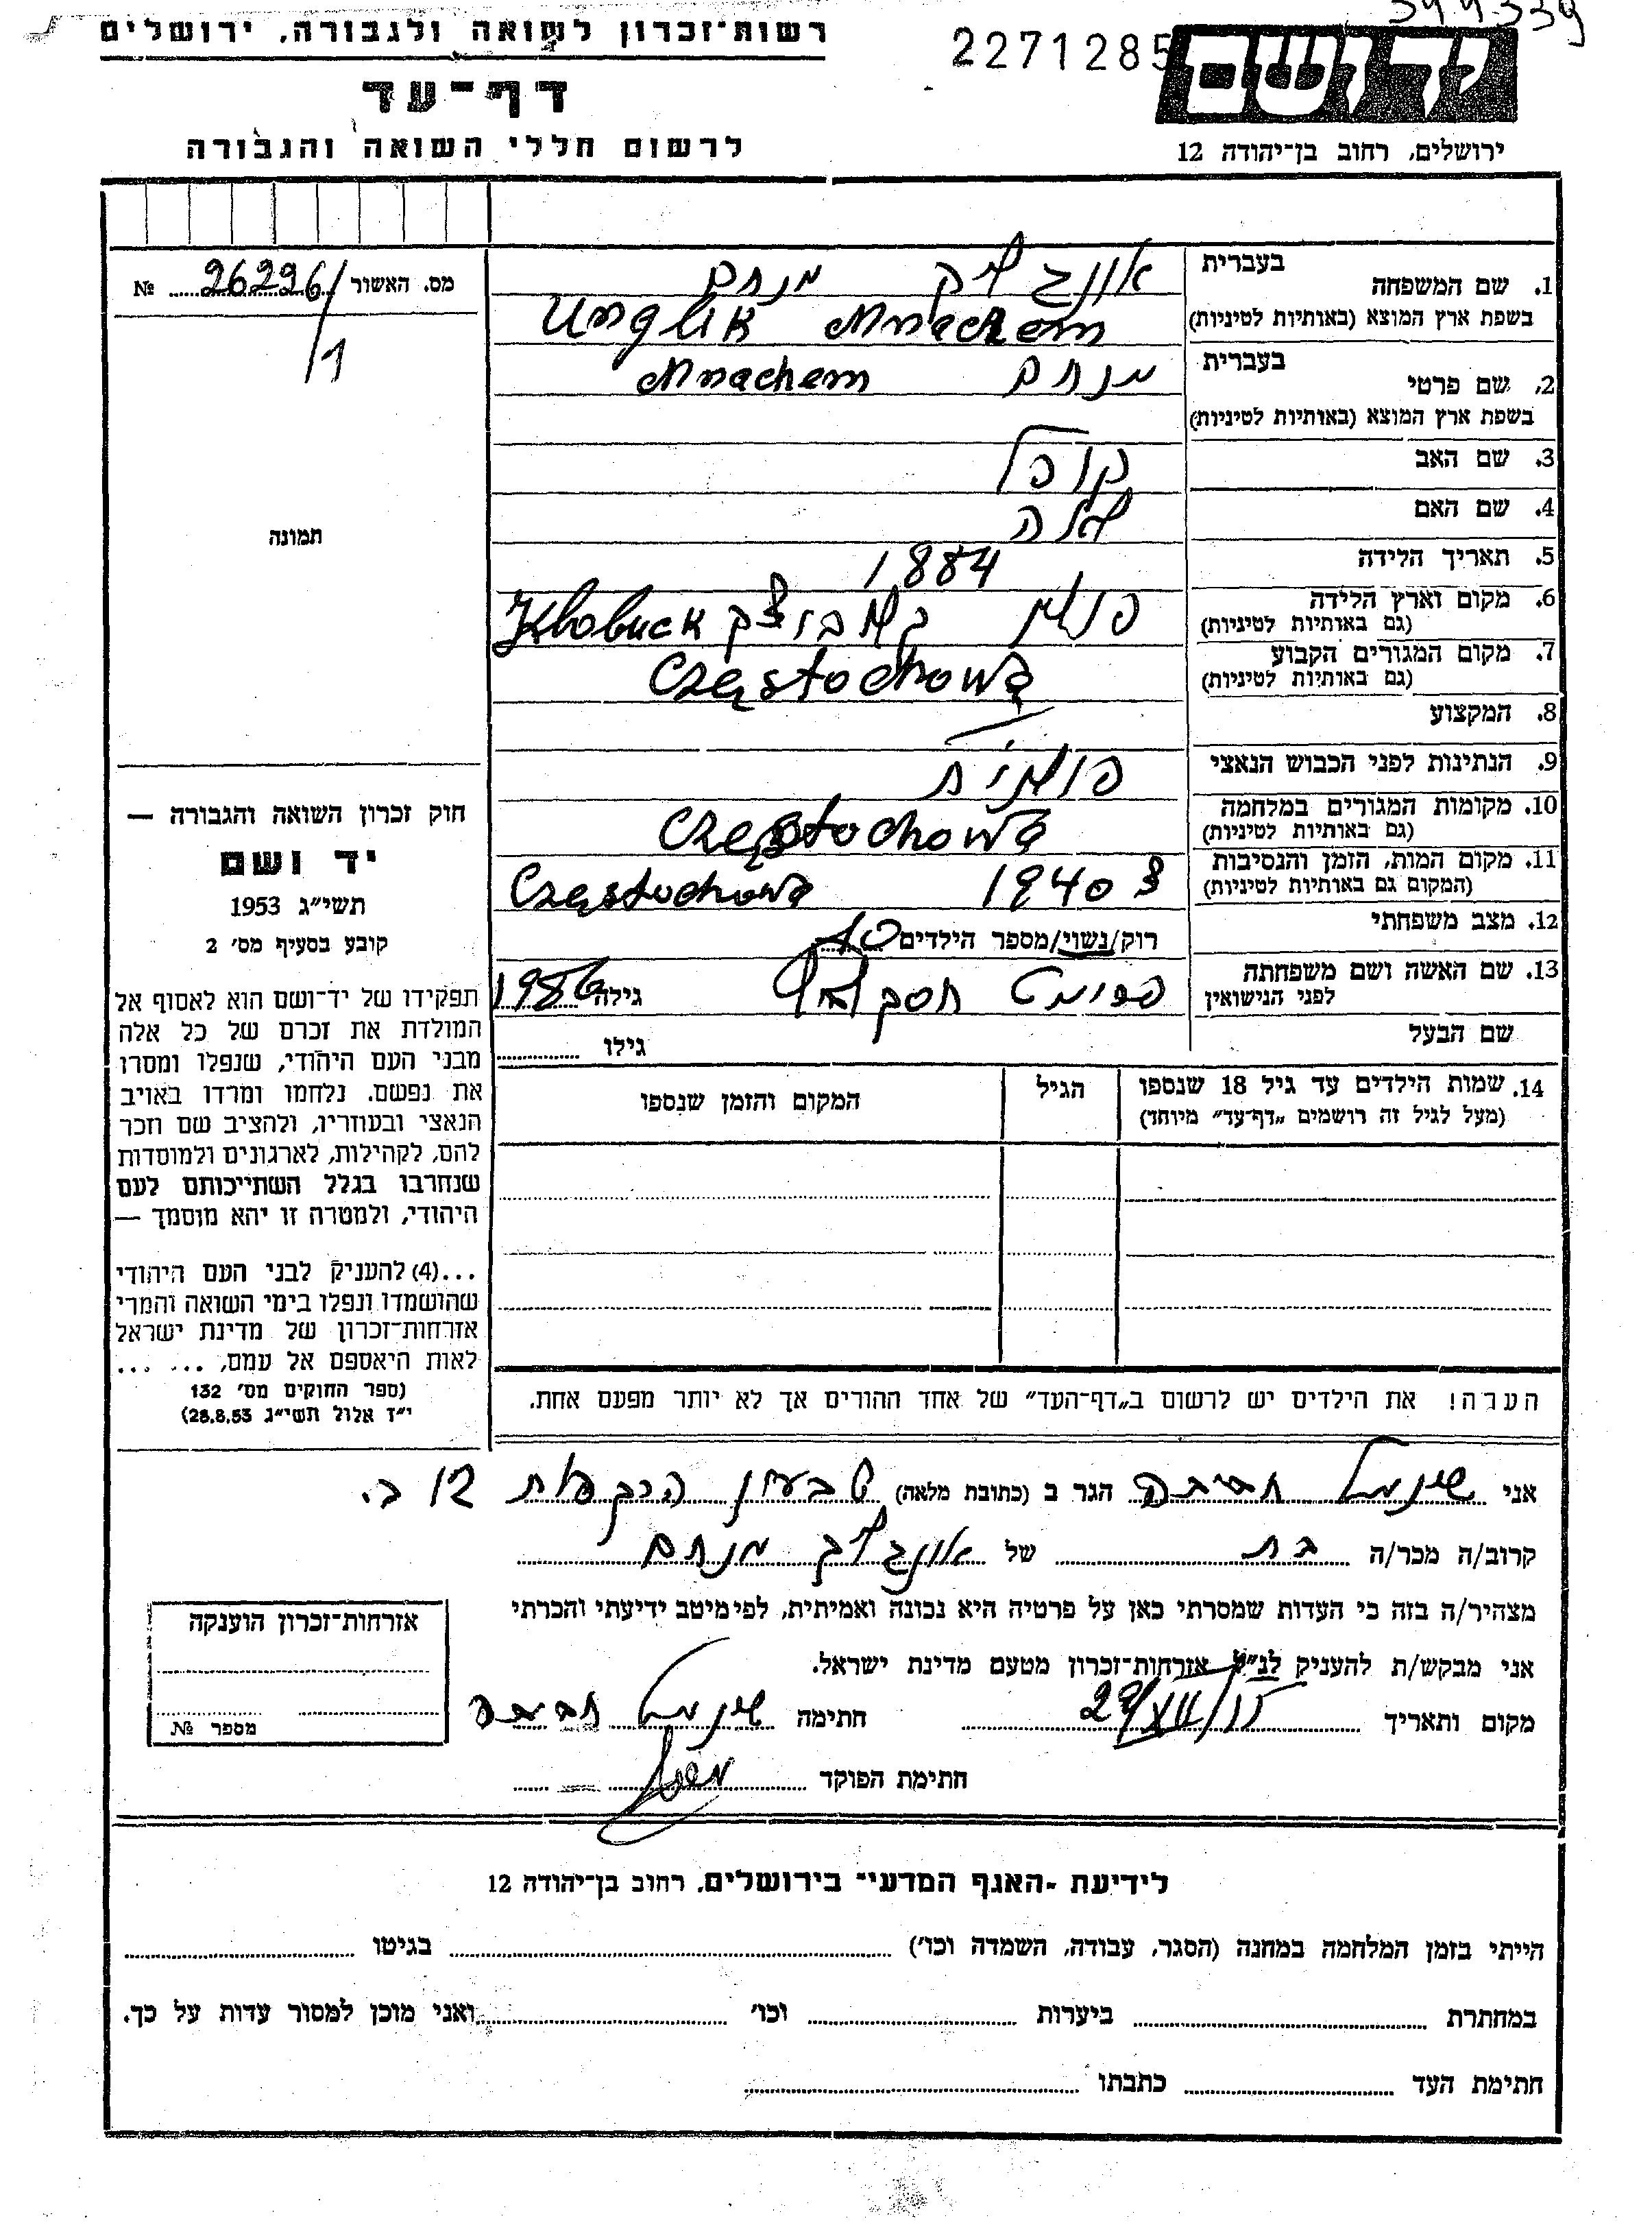 רשות־זכרון לשואה ולגבורה, ירושלים
דף־עד
לרשום חללי השואה והגבורה
2271285
יד ושם
ירושלים, רחוב בן־יהודה 12
מס. האשור 26296/ №
/1
תמונה
1. שם המשפחה בעברית אונגליק מנחם
בשפת ארץ המוצא (באותיות לטיניות) Unglik Mnachem
2. שם פרטי בעברית מנחם Mnachem
בשפת ארץ המוצא (באותיות לטיניות)
3. שם האב קופל
4. שם האם לאה
5. תאריך הלידה 1884
6. מקום וארץ הלידה פולין קלבוצק Kłobuck
(גם באותיות לטיניות)
7. מקום המגורים הקבוע Częstochowa
(גם באותיות לטיניות)
8. המקצוע
9. הנתינות לפני הכבוש הנאצי פולנית
10. מקומות המגורים במלחמה Częstochowa
(גם באותיות לטיניות)
11. מקום המות, הזמן והנסיבות 1940 Częstochowa
(המקום גם באותיות לטיניות)
12. מצב משפחתי רוק/נשוי/מספר הילדים
13. שם האשה ושם משפחתה גילה
לפני הנישואין
שם הבעל גילו
14. שמות הילדים עד גיל 18 שנספו הגיל המקום והזמן שנספו
(מעל לגיל זה רושמים „דף־עד" מיוחד)
הערה! את הילדים יש לרשום ב„דף־העד" של אחד ההורים אך לא יותר מפעם אחת.
חוק זכרון השואה והגבורה —
יד ושם
תשי״ג 1953
קובע בסעיף מס׳ 2
תפקידו של יד־ושם הוא לאסוף אל
המולדת את זכרם של כל אלה
מבני העם היהודי, שנפלו ומסרו
את נפשם, נלחמו ומרדו באויב
הנאצי ובעוזריו, ולהציב שם וזכר
להם, לקהילות, לארגונים ולמוסדות
שנחרבו בגלל השתייכותם לעם
היהודי, ולמטרה זו יהא מוסמך —
...(4) להעניק לבני העם היהודי
שהושמדו ונפלו בימי השואה והמרי
אזרחות־זכרון של מדינת ישראל
לאות היאספם אל עמם, ... ...
(ספר החוקים מס׳ 132
י״ז אלול תשי״ג 28.8.53)
אני הגר ב (כתובת מלאה) טבעון הרקפות
קרוב/ה מכר/ה בת של אונגליק מנחם
מצהיר/ה בזה כי העדות שמסרתי כאן על פרטיה היא נכונה ואמיתית, לפי מיטב ידיעתי והכרתי
אני מבקש/ת להעניק לנ״ל אזרחות־זכרון מטעם מדינת ישראל.
מקום ותאריך חתימה
חתימת הפוקד
אזרחות־זכרון הוענקה
מספר №
לידיעת ״האגף המדעי״ בירושלים, רחוב בן־יהודה 12
הייתי בזמן המלחמה במחנה (הסגר, עבודה, השמדה וכו׳) בגיטו
במחתרת ביערות וכו׳ ואני מוכן למסור עדות על כך.
חתימת העד כתבתו